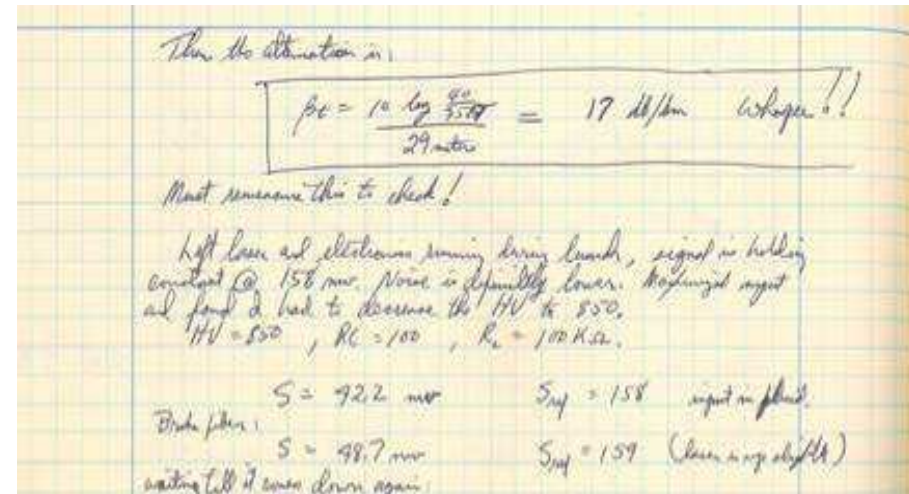 Then the attenuation is:
βt = 10 log 40/ / 29 meters = 17 db/km Whopee!!
Must remeasure this to check!
Left laser and electronics running during lunch, signal is holding
constant @ 158 mv. Noise is definitely lower. Maximized input
and found I had to decrease the HV to 850.
HV = 850 , RC = 100 , RL = 100 KΩ.
S = 42.2 mv Sref = 158 input in place.
Broke fiber:
S = 48.7 mv Sref = 159 (laser is up slightly)
waiting till it comes down again: